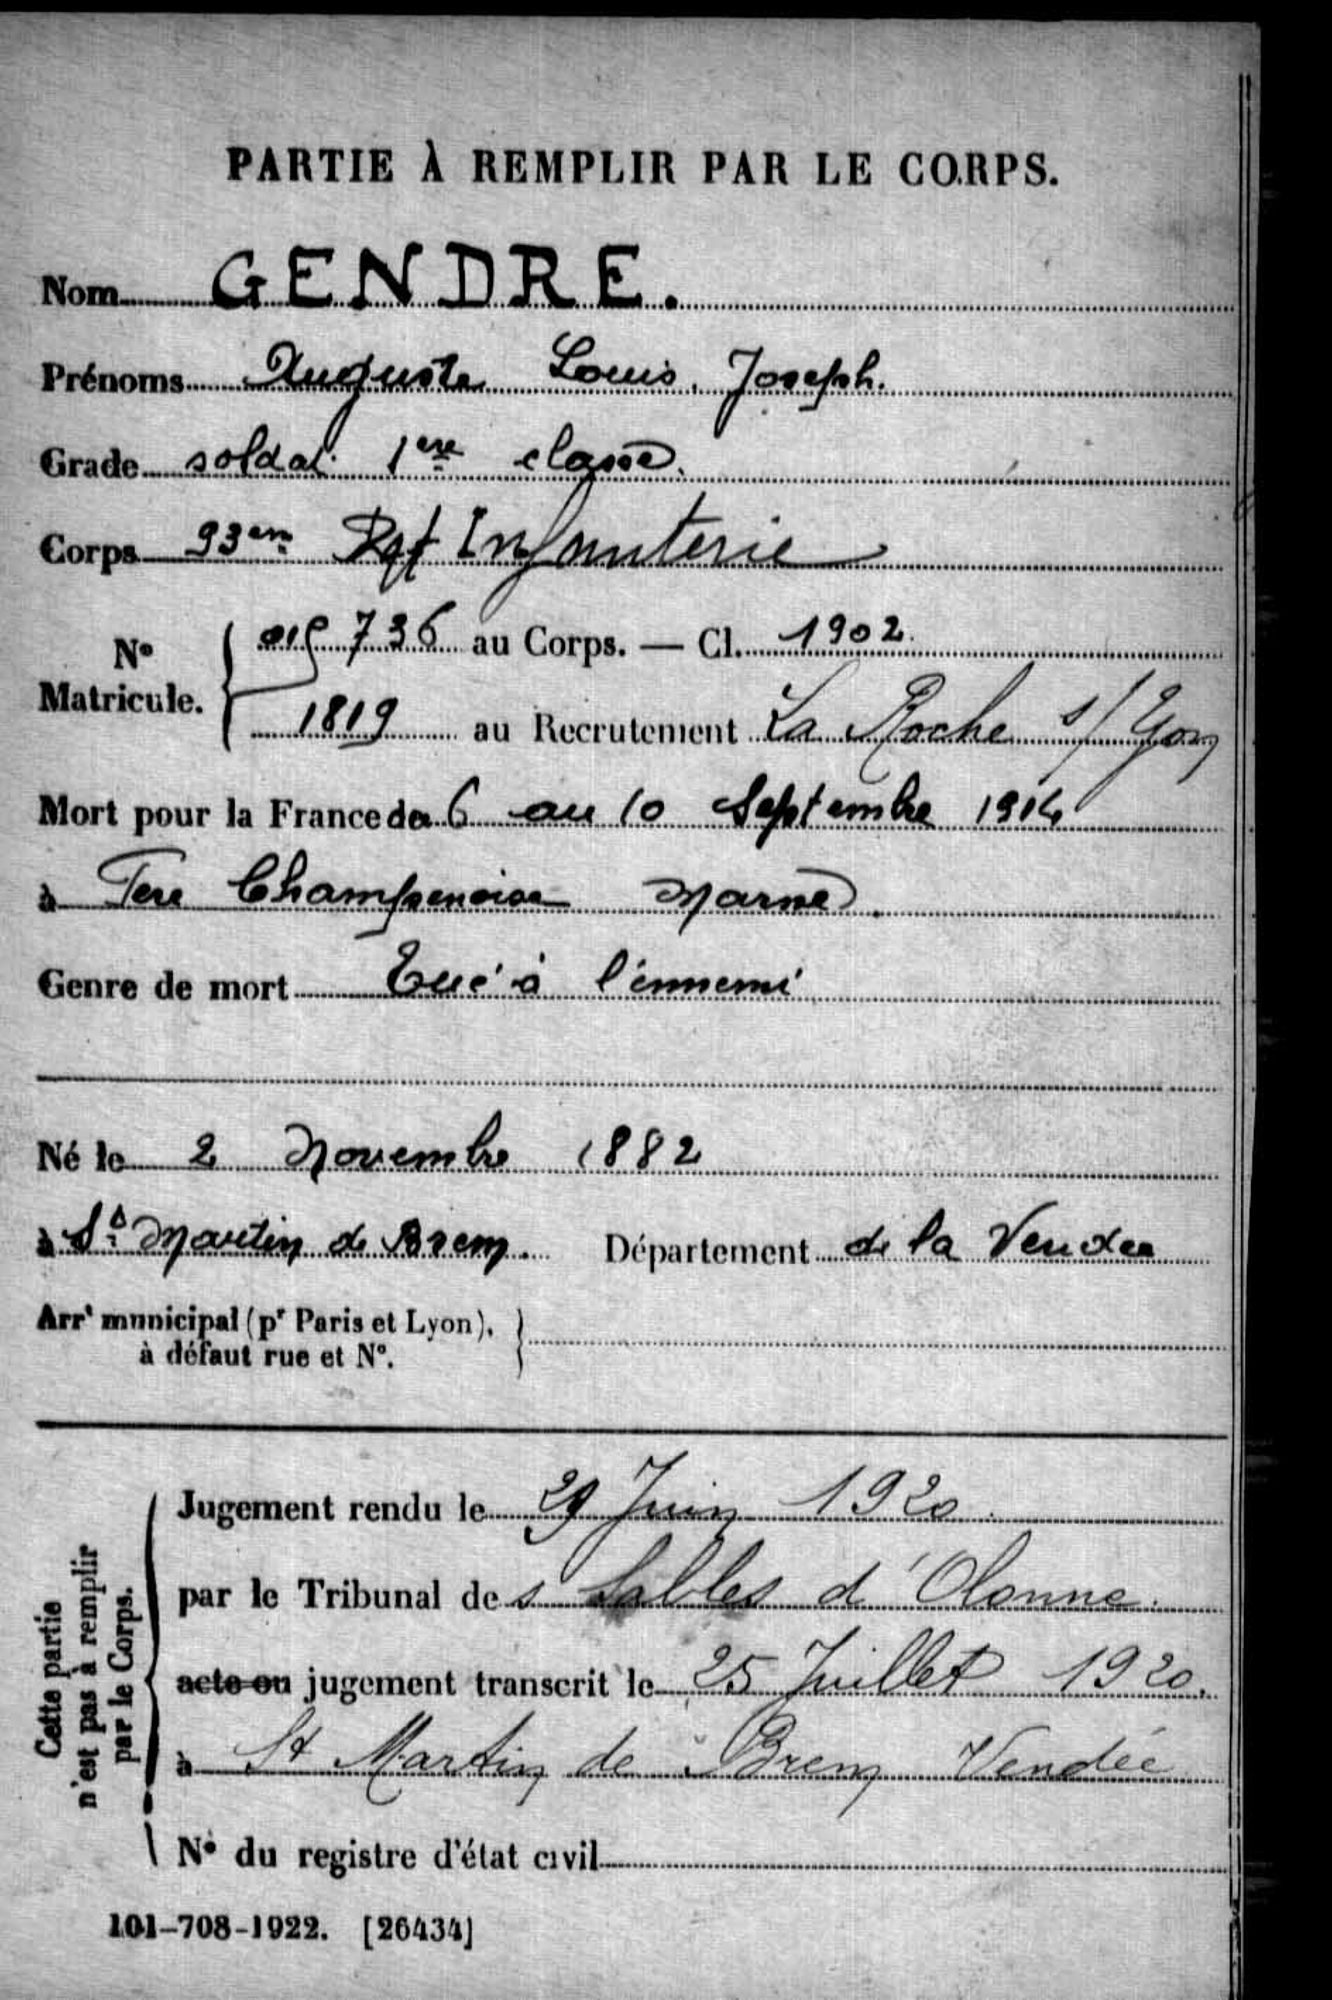 PARTIE À REMPLIR PAR LE CORPS.
Nom GENDRE.
Prénoms Auguste Louis. Joseph.
Grade soldat 1ere classe.
Corps 93em Rgt Infanterie
N° Matricule. { 736 au Corps. — Cl. 1902.
1819 au Recrutement La Roche s/ Yon
Mort pour la France du 6 au 10 Septembre 1914
à Fere Champenoise Marne.
Genre de mort Tué à l'ennemi
Né le 2 Novembre 1882
à St Martin de Brem. Département de la Vendee
Arrt municipal (pr Paris et Lyon),
à défaut rue et N°.
Cette partie
n'est pas à remplir
par le Corps.
Jugement rendu le 29 Juin 1920.
par le Tribunal des Sables d'Olonne.
acte ou jugement transcrit le 25 Juillet 1920.
à St Martin de Brem Vendée
N° du registre d'état civil
101-708-1922. [26434]